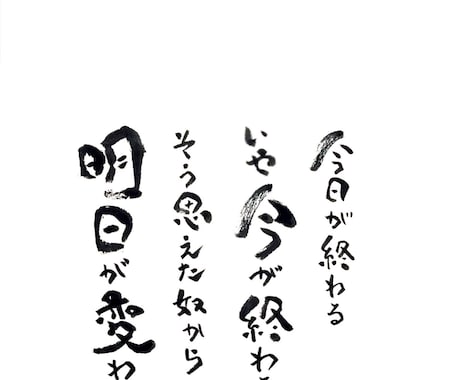 今日が終わる
いや今が終わる
そう思えた奴から
明日が変わ